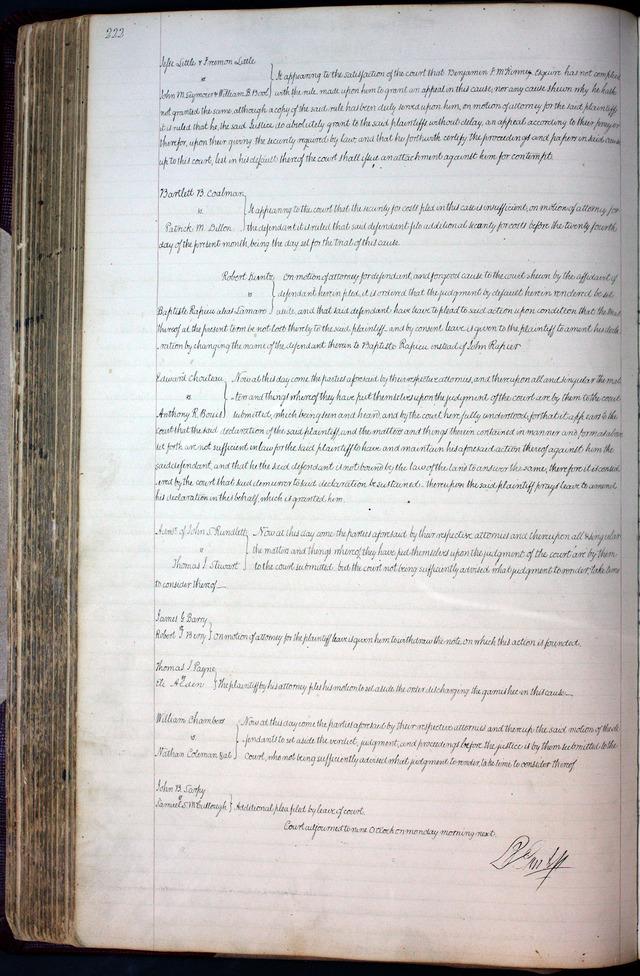 222
Jesse Little & Freemon Little
vs } It appearing to the satisfaction of the court that Benjamin F. McKinney Esquire has not complied
John M. Seymour & William B. Bool } with the rule made upon him to grant an appeal in this cause, nor any cause shewn why he hath
not granted the same, although a copy of the said rule has been duly served upon him, on motion of attorney for the said plaintiffs
it is ruled that he, the said Justice do absolutely grant to the said plaintiffs without delay, an appeal according to their prayer
therefor, upon their giving the security required by law, and that he forthwith certify the proceedings and papers in said cause
up to this court, lest in his default thereof the court shall issue an attachment against him for contempt.
Bartlett B. Coalman
vs } It appearing to the court that the security for costs filed in this case is insufficient, on motion of attorney for
Patrick M. Dillon } the defendant it is ruled that said defendant file additional security for costs before the twenty fourth
day of the present month, being the day set for the trial of this cause.
Robert } On motion of attorney for defendant, and for good cause to the court shewn by the affidavit of
vs } defendant herein filed, it is ordered that the judgment by default herein rendered be set
Baptiste Rapieu alias Lamaro } aside, and that said defendant have leave to plead to said action upon condition that the trial
thereof at the present term be not lost thereby to the said plaintiff, and by consent leave is given to the plaintiff to ament his decla
ration by changing the name of the defendant therein to Baptiste Rapieu instead of John Rapier
Edward Chouteau } Now at this day come the parties aforesaid by their respective attornies, and thereupon all and singular the mat
vs } ters and things whereof they have put themselves upon the judgment of the court are by them to the court
Anthony R. Bouis } submitted, which being seen and heard, and by the court here fully understood, for that it appears to the
court that the said declaration of the said plaintiff, and the matters and things therein contained in manner and form as above
set forth are not sufficient in law for the said plaintiff to have and maintain his aforesaid action thereof against him the
said defendant, and that he the said defendant is not bound by the law of the land to answer the same, therefore it is consid
ered by the court that said demurrer to said declaration be sustained. thereupon the said plaintiff prays leave to amend
his declaration in this behalf, which is granted him.
Admr. of John S. Rundlett } Now at this day come the parties aforesaid by their respective attornies and thereupon all & singular
vs } the matters and things whereof they have put themselves upon the judgment of the court are by them
Thomas J. Stewart } to the court submitted, but the court not being sufficiently advised what judgment to render, take time
to consider thereof
James G. Barry
vs
Robert J. Berry } On motion of attorney for the plaintiff leave is given him to withdraw the note, on which this action is founded.
Thomas J. Payne
vs
Eli A. Eden } The plaintiff by his attorney files his motion to set aside the order discharging the garnishee in this cause
William Chambers } Now at this day come the parties aforesaid by their respective attornies and thereup the said motion of the de
vs } fendants to set aside the verdict, judgment, and proceedings before the justice is by them submitted to the
Nathan Coleman & al } Court, who not being sufficiently advised what judgment to render, take time to consider thereof
John B. Sarpy
vs
Samuel S. McCullough } Additional plea filed by leave of court.
Court adjourned to nine O'clock on monday morning next.